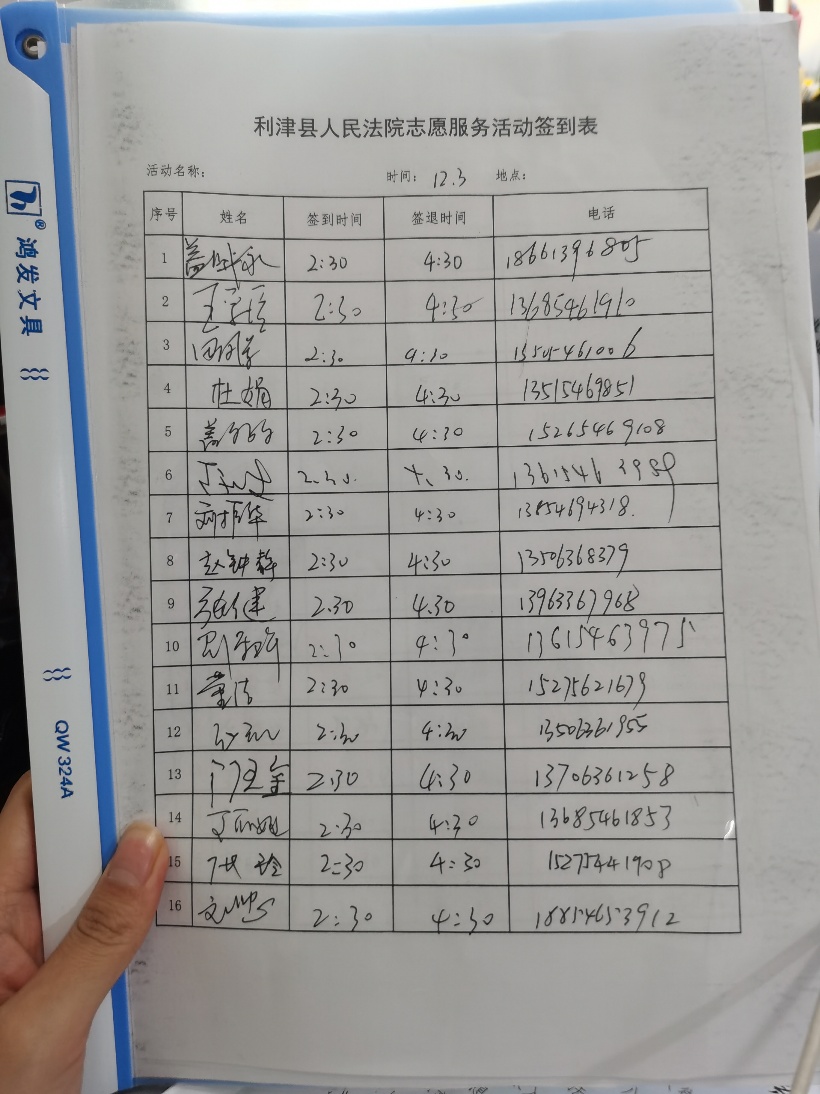 利津县人民法院志愿服务活动签到表
活动名称: 时间: 12.3 地点:
序号 姓名 签到时间 签退时间 电话
1 2:30 4:30 18661396805
2 2:30 4:30 13685461910
3 2:30 4:30
4 杜娟 2:30 4:30 13515469851
5 2:30 4:30 15265469108
6 2.30. 4.30. 13615463989
7 2:30 4:30 13854694318.
8 2:30 4:30 13506368379
9 张健 2.30 4.30 13963367968
10 2:30 4:30 13615463975
11 2:30 4:30 15275621679
12 2:30 4:30 13506361955
13 2:30 4:30 13706361258
14 2:30 4:30 13685461853
15 2:30 4:30 15275441908
16 2:30 4:30 18854653912
鸿发文具
QW324A